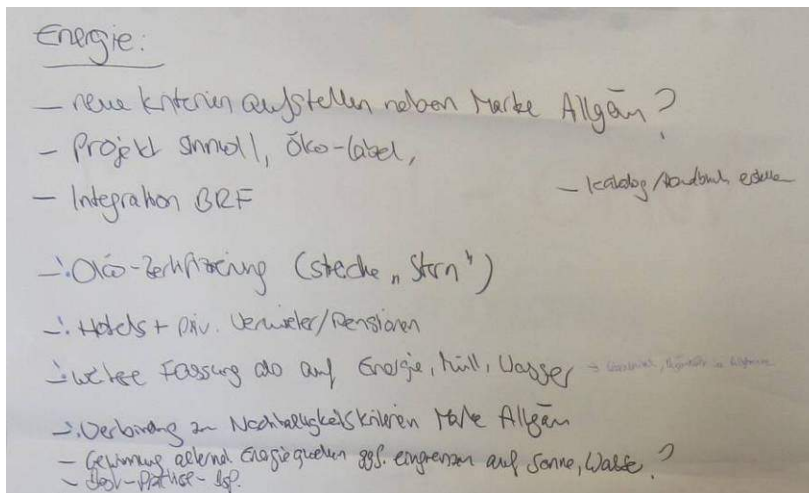 Energie:
- neue Kriterien aufstellen neben Marke Allgäu?
- Projekt sinnvoll, Öko-Label,
- Katalog/Handbuch erstellen
- Integration BRF
-: Öko-Zertifizierung (siehe „Stern")
-: Hotels + priv. Vermieter/Pensionen
-: weitere Fassung als auf Energie, Müll, Wasser
-: Verbindung zu Nachhaltigkeitskriterien Marke Allgäu
- Gewinnung Energiequellen ggf. eingrenzen auf Sonne, Wasser?
- Best-Practise-Bsp.